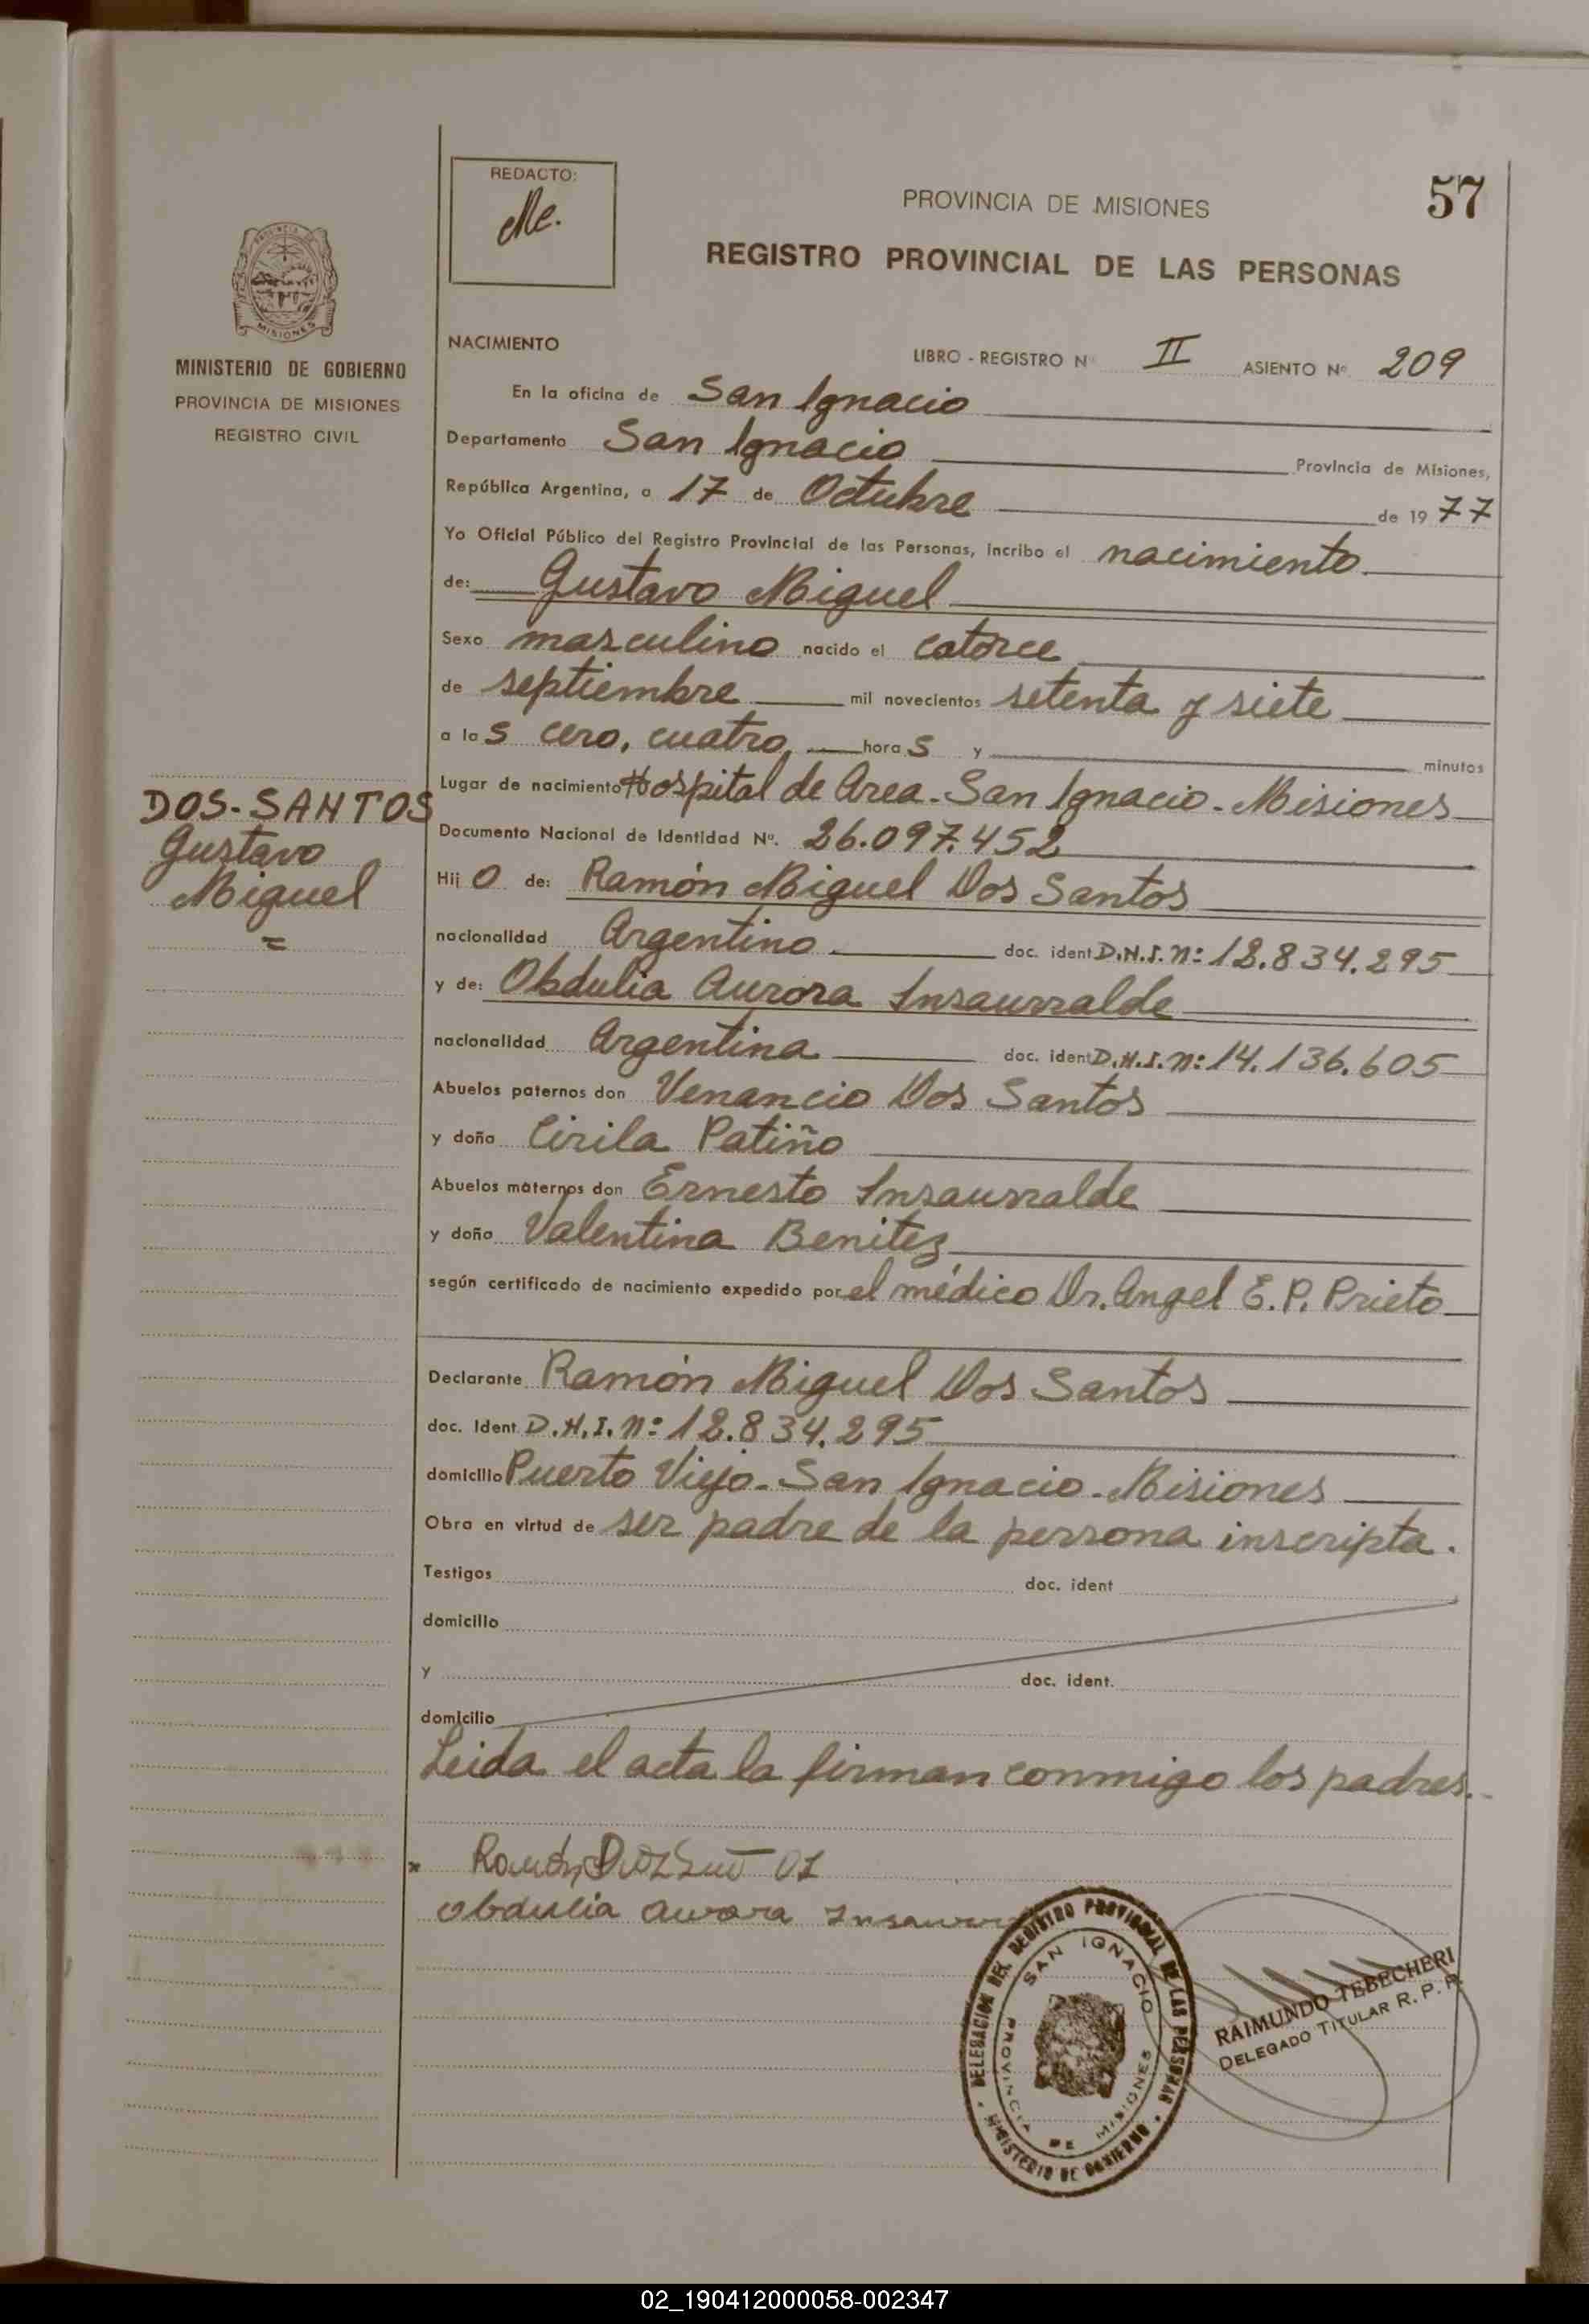 57
REDACTO:
Me.
PROVINCIA DE MISIONES
REGISTRO PROVINCIAL DE LAS PERSONAS
PROVINCIA DE
MISIONES
MINISTERIO DE GOBIERNO
PROVINCIA DE MISIONES
REGISTRO CIVIL
NACIMIENTO
LIBRO - REGISTRO Nº II ASIENTO Nº 209
En la oficina de San Ignacio
Departamento San Ignacio Provincia de Misiones,
República Argentina, a 17 de Octubre de 1977
Yo Oficial Público del Registro Provincial de las Personas, incribo el nacimiento
de: Gustavo Miguel
Sexo masculino nacido el catorce
de septiembre mil novecientos setenta y siete
a las cero, cuatro, horas y minutos
Lugar de nacimiento Hospital de Area - San Ignacio - Misiones
DOS-SANTOS
Gustavo
Miguel
=
Documento Nacional de Identidad Nº. 26.097.452
Hijo de: Ramón Miguel Dos Santos
nacionalidad Argentino doc. ident D.N.I. Nº: 12.834.295
y de: Obdulia Aurora Insaurralde
nacionalidad Argentina doc. ident D.N.I. Nº: 14.136.605
Abuelos paternos don Venancio Dos Santos
y doña Cirila Patiño
Abuelos maternos don Ernesto Insaurralde
y doña Valentina Benitez
según certificado de nacimiento expedido por el médico Dr. Angel E. P. Prieto
Declarante Ramón Miguel Dos Santos
doc. Ident. D.N.I. Nº: 12.834.295
domicilio Puerto Viejo - San Ignacio - Misiones
Obra en virtud de ser padre de la persona inscripta.
Testigos doc. ident
domicilio
y doc. ident.
domicilio
Leida el acta la firman conmigo los padres.-
x Ramón
Obdulia Aurora
DELEGACION DEL REGISTRO PROVINCIAL DE LAS PERSONAS
MINISTERIO DE GOBIERNO
SAN IGNACIO
PROVINCIA DE MISIONES
RAIMUNDO TEBECHERI
DELEGADO TITULAR R. P. P.
02_190412000058-002347